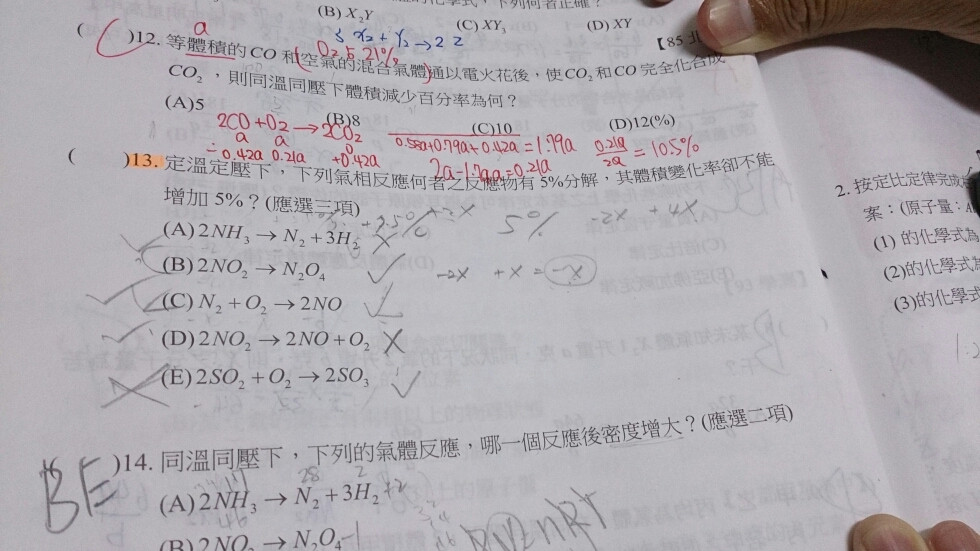 (B) X₂Y (C) XY₃ (D) XY
下列何者正確？
X₂ + Y₂ → 2Z
【85
a
( )12. 等體積的 CO 和(空氣的混合氣體)通以電火花後，使 CO₂ 和 CO 完全化合成
O₂ 21%
CO₂，則同溫同壓下體積減少百分率為何？
(A)5 (B)8 (C)10 (D)12(%)
2CO + O₂ → 2CO₂
a a 0
-0.42a 0.21a +0.42a
0.58a+0.79a+0.42a = 1.79a
2a-1.79a=0.21a
0.21a/2a = 10.5%
( )13. 定溫定壓下，下列氣相反應何者之反應物有 5%分解，其體積變化率卻不能
增加 5%？(應選三項)
5% -2x + 4x
(A) 2NH₃ → N₂ + 3H₂
(B) 2NO₂ → N₂O₄
-2x + x = -x
(C) N₂ + O₂ → 2NO
(D) 2NO₂ → 2NO + O₂
(E) 2SO₂ + O₂ → 2SO₃
BE )14. 同溫同壓下，下列的氣體反應，哪一個反應後密度增大？(應選二項)
28 2
(A) 2NH₃ → N₂ + 3H₂ +2
(B) 2NO₂ → N₂O₄
2. 按定比定律完
案：(原子量：
(1) 的化學式為
(2)的化學式為
(3)的化學式